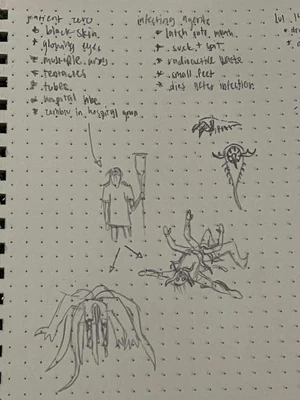 patient zero
* black skin
* glowing eyes
* multiple arms
* tentacles
* tubes
* hospital
* in hospital gown
infecting agents
* latch onto
* suck + eat
* radioactive waste
* small feet
* dies after infection
lvl 1